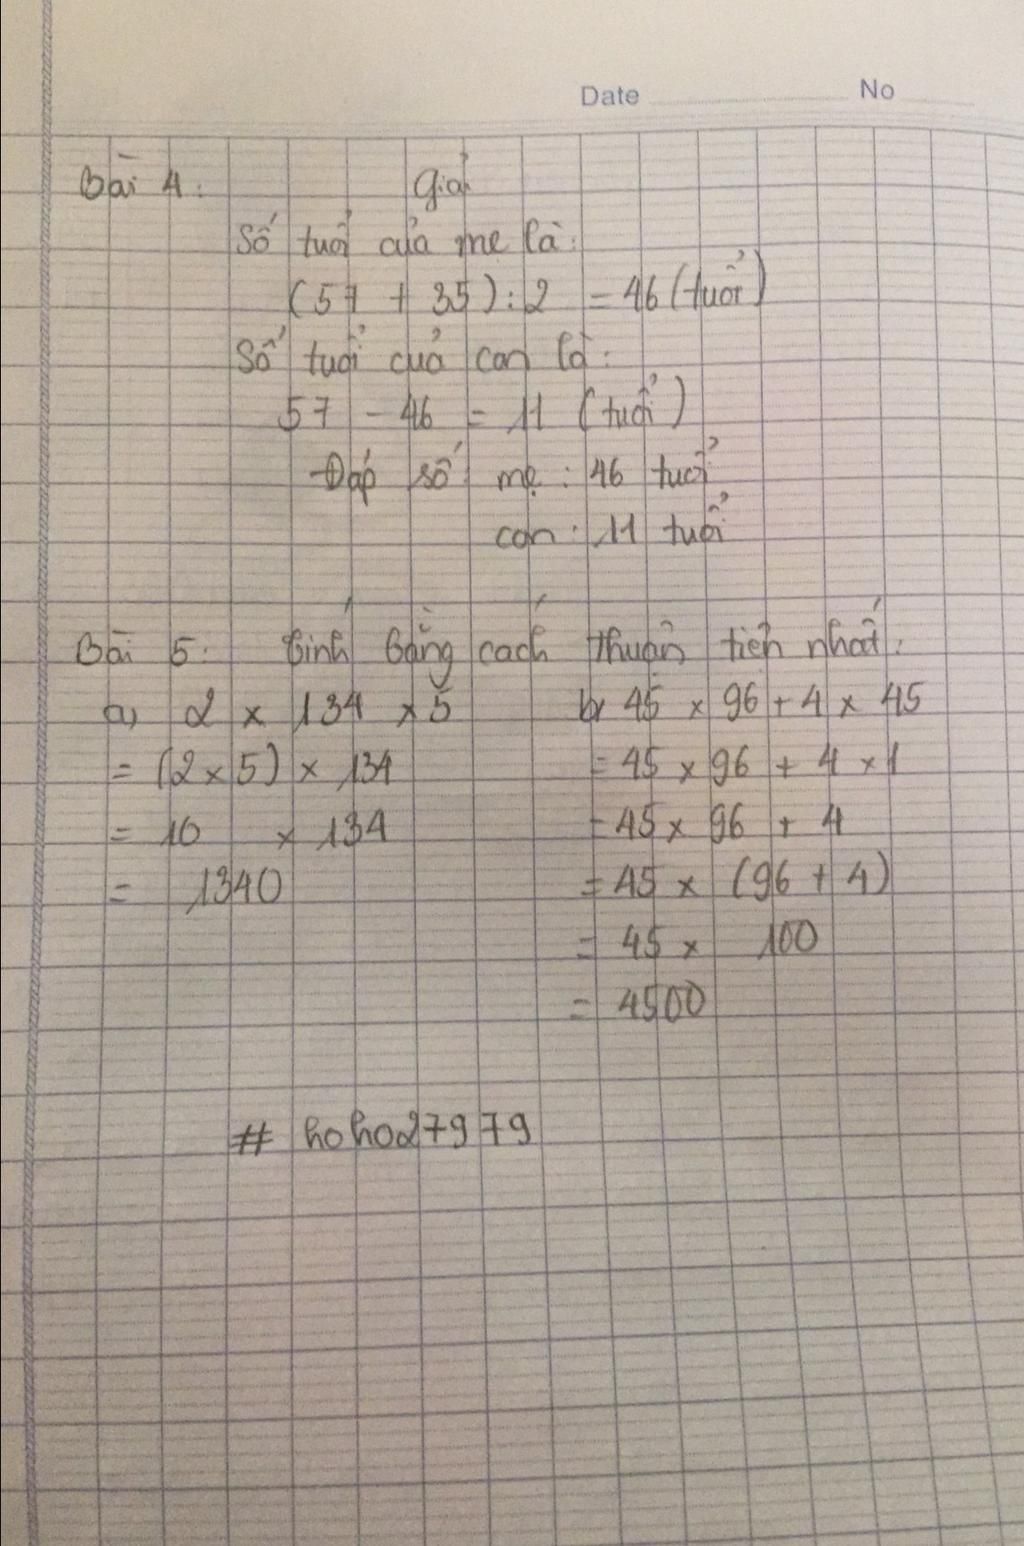 Date No
Bài 4: Giải
Số tuổi của mẹ là:
(57 + 35) : 2 = 46 (tuổi)
Số tuổi của con là:
57 - 46 = 11 (tuổi)
Đáp số mẹ: 46 tuổi
con: 11 tuổi
Bài 5: tính bằng cách thuận tiện nhất:
a, 2 x 134 x 5
= (2 x 5) x 134
= 10 x 134
= 1340
b, 45 x 96 + 4 x 45
= 45 x 96 + 4 x 1
= 45 x 96 + 4
= 45 x (96 + 4)
= 45 x 100
= 4500
# hoho27979